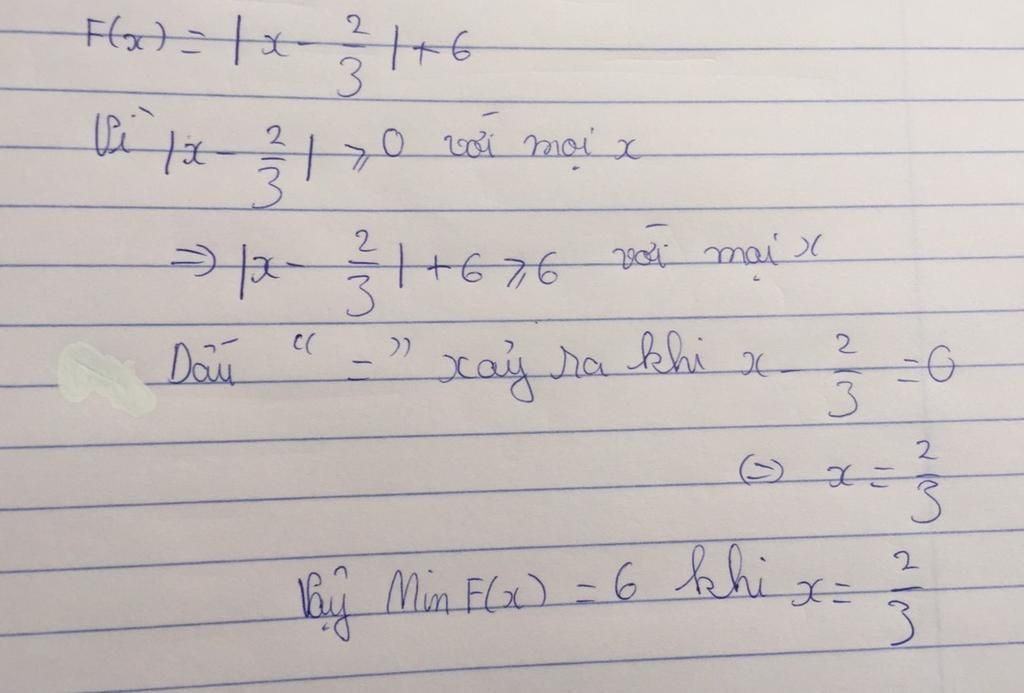 F(x) = |x - 2/3| + 6
Vì |x - 2/3| ⩾ 0 với mọi x
⇒ |x - 2/3| + 6 ⩾ 6 với mọi x
Dấu “=” xảy ra khi x - 2/3 = 0
⇔ x = 2/3
Vậy Min F(x) = 6 khi x = 2/3